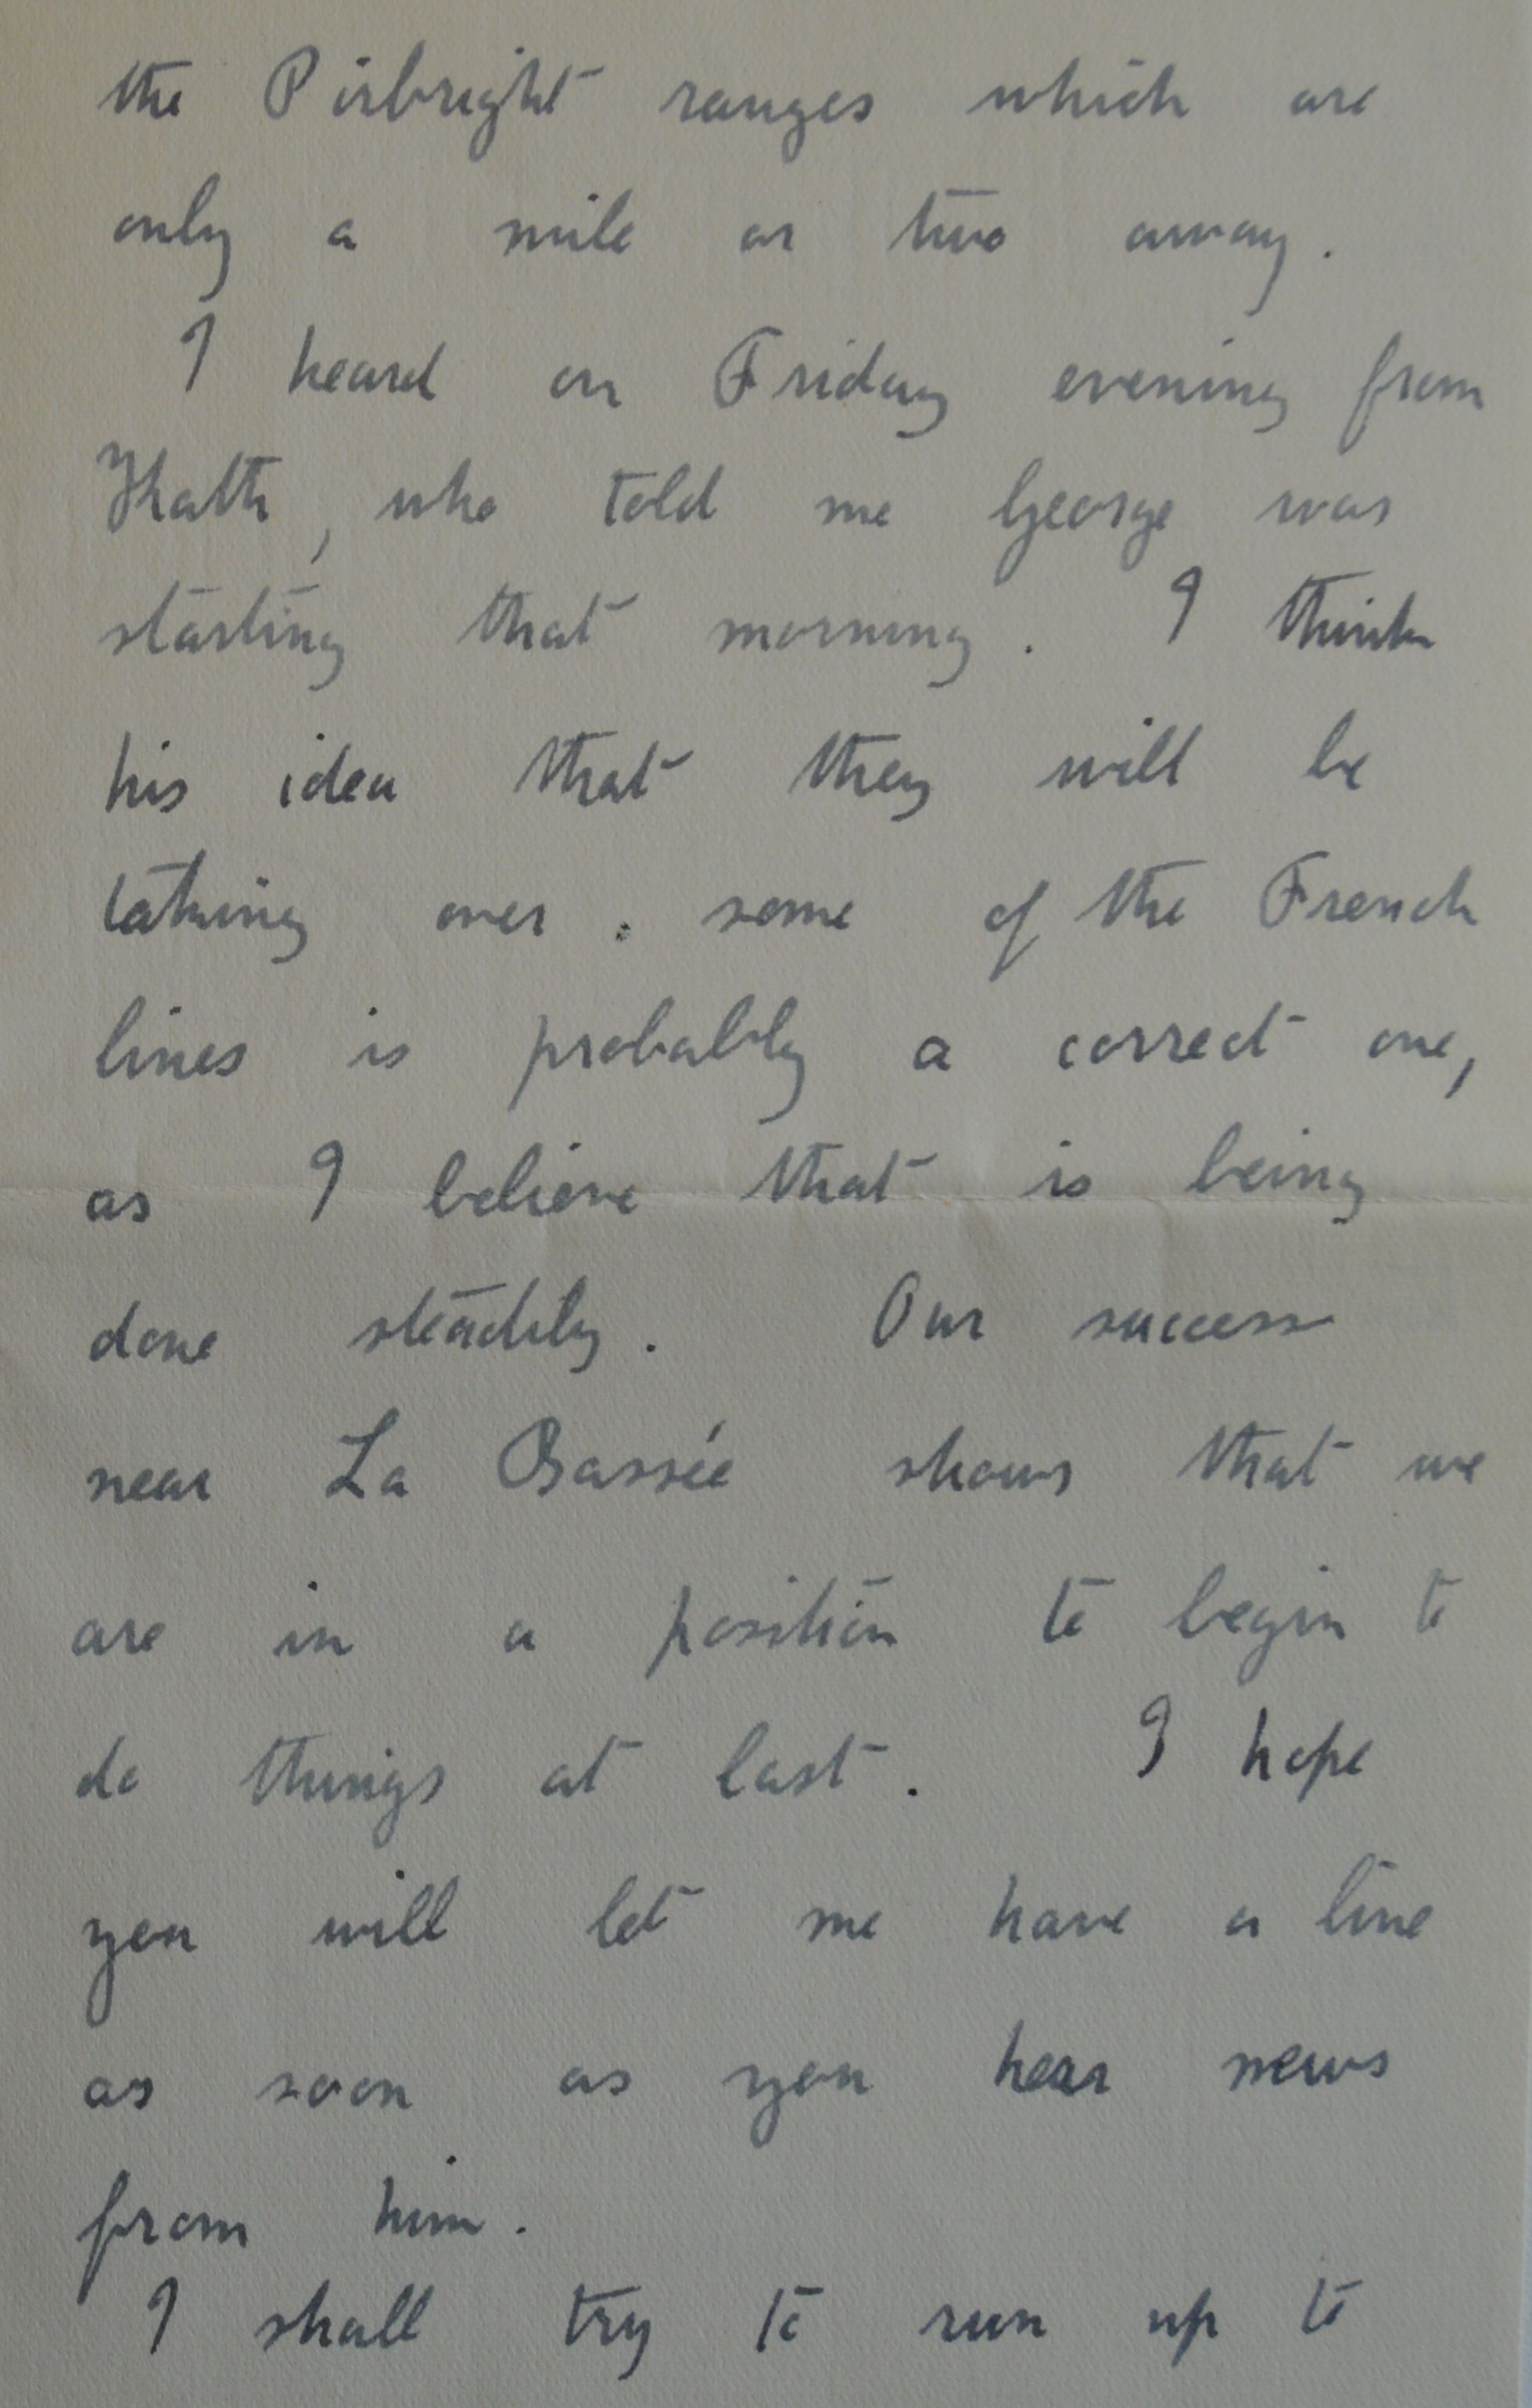 the Pirbright ranges which are
only a mile or two away.
I heard on Friday evening from
who told me George was
starting that morning. I think
his idea that they will be
taking over some of the French
lines is probably a correct one,
as I believe that is being
done steadily. Our success
near La Bassée shows that we
are in a position to begin to
do things at last. I hope
you will let me have a line
as soon as you hear news
from him.
I shall try to run up to